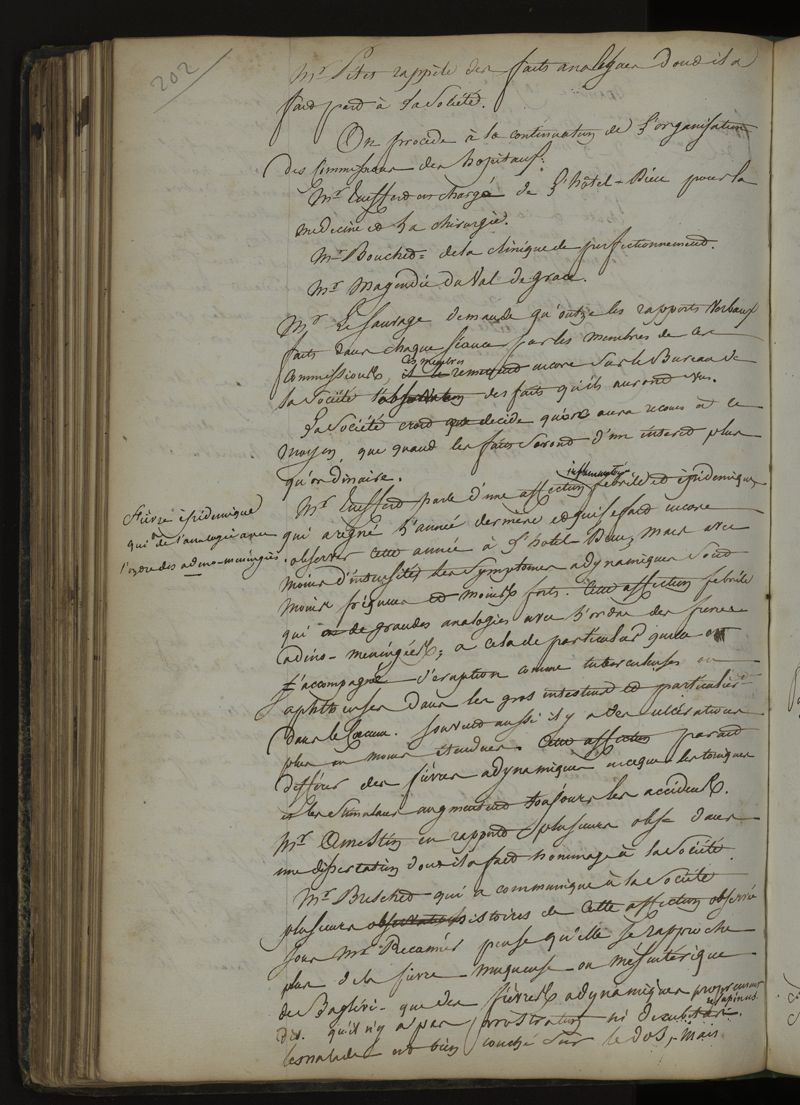 202
Mr Petit rappele des faits analogues dont il a
fait part à la Société.
On procède à la continuation de l'organisation
des Commissions des hopitaux:
Mr est chargé de l'hôtel-Dieu pour la
medecine et la chirurgie.
Mr Bouchet = de la clinique de perfectionnement.
Mr Magendie du Val de grace.
Mr Le Sauvage demande qu'outre les rapports Verbaux
faits dans chaque séance par les membres de ces
Commissions, ces membres encore sur le Bureau de
la Société l'observation des faits qu'ils auront vus.
La Société croit que decide qu'on aura recours à ce
moyen, que quand les faits seront d'un interet plus
qu'ordinaire.
Mr parle d'une affection inflammatoire febrile et épidemique
Fièvre épidemique
qui a de l'analogie avec
l'ordre des adino-meningées.
qui a regné l'année derniere et qui se fait encore
observer cette année à l'hotel-Dieu, mais avec
moins d'intensité les symptomes adynamiques sont
moins fréquens et moins forts. Cette affection febrile
qui a de grandes analogies avec l'ordre des fievres
adino-meningées; a cela de particulier qu'elle est
s'accompagne d'eruption comme tuberculeuses ou
aphtheuses dans les gros intestins et particulièrt
dans le Cœcum. Souvent aussi il y a des ulcérations
plus ou moins étendues. Cette affection parait
différer des fièvres adynamiques en ce que les toniques
et les stimulans augmentent toujours les accidens.
Mr en rapporte plusieurs obs. dans
une dissertation dont il a fait hommage à la Société.
Mr Breschet qui a communiqué à la Société
plusieurs observations histoires de cette affection observée
sous Mr Recamier pense qu'elle se rapproche
plus de la fievre muqueuse ou mésentérique
de Baglivi que des fièvres adynamiques proprement
dit. qu'il n'y a pas prostration ni decubitus en supinus.
le malade est bien couché sur le dos, mais